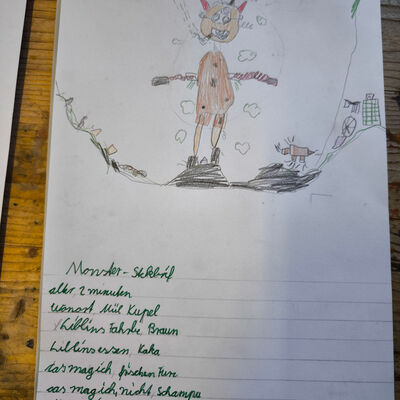 Monster - Stekbrif
alter, 2 minuten
wonort, Mül Kupel
Liblins Fahrbe Braun
Liblinsessen, Kaka
das magich, frischen Furz
das magich nicht, Schampu